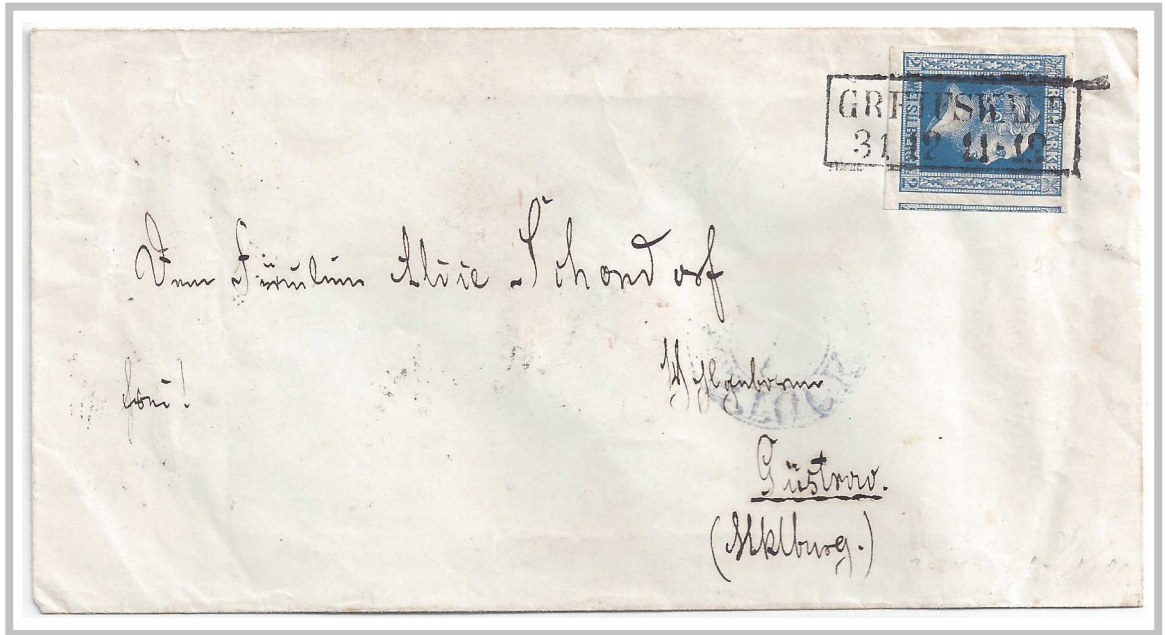 GREIFSWALD
31 12 11-12
FREIMARKE
2 SILBERGR. 2
Dem Fräulein Alvie Schondorf
frei!
Wohlgeboren
Güstrow.
(Mklburg.)